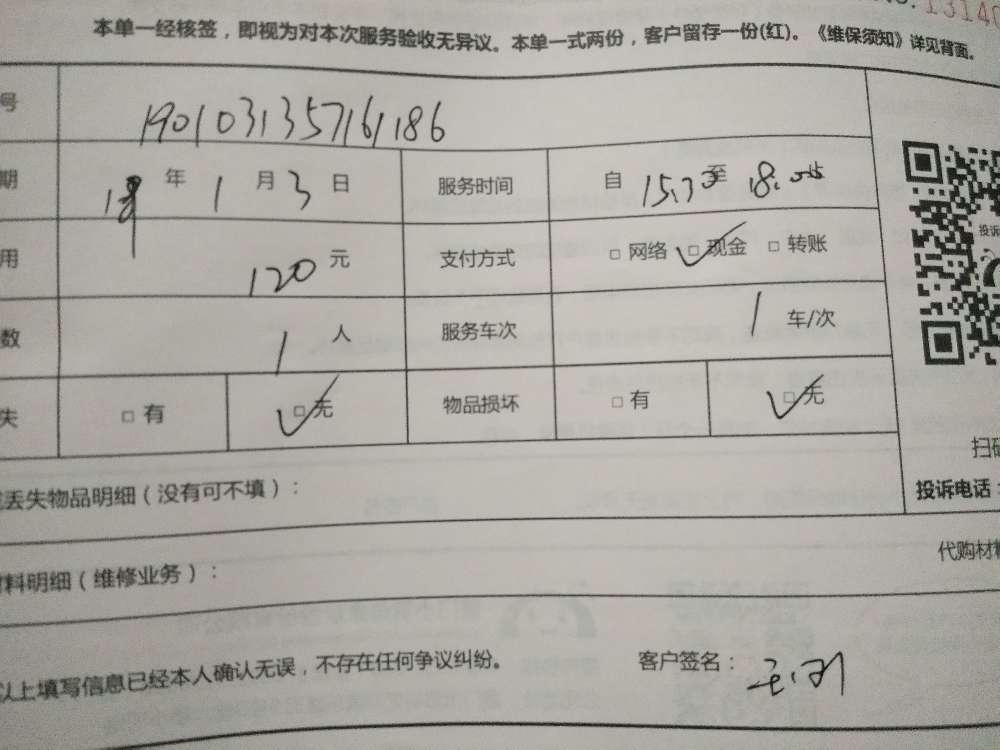 13140
本单一经核签，即视为对本次服务验收无异议。本单一式两份，客户留存一份(红)。《维保须知》详见背面。
号 190103135716186
期 年 1 月 3 日 服务时间 自 15:30 至 18:00
用 120 元 支付方式 □ 网络 □ 现金 □ 转账
数 1 人 服务车次 1 车/次
失 □ 有 □ 无 物品损坏 □ 有 □ 无
投诉
扫码
投诉电话：
丢失物品明细（没有可不填）：
料明细（维修业务）：
代购材料
以上填写信息已经本人确认无误，不存在任何争议纠纷。 客户签名：